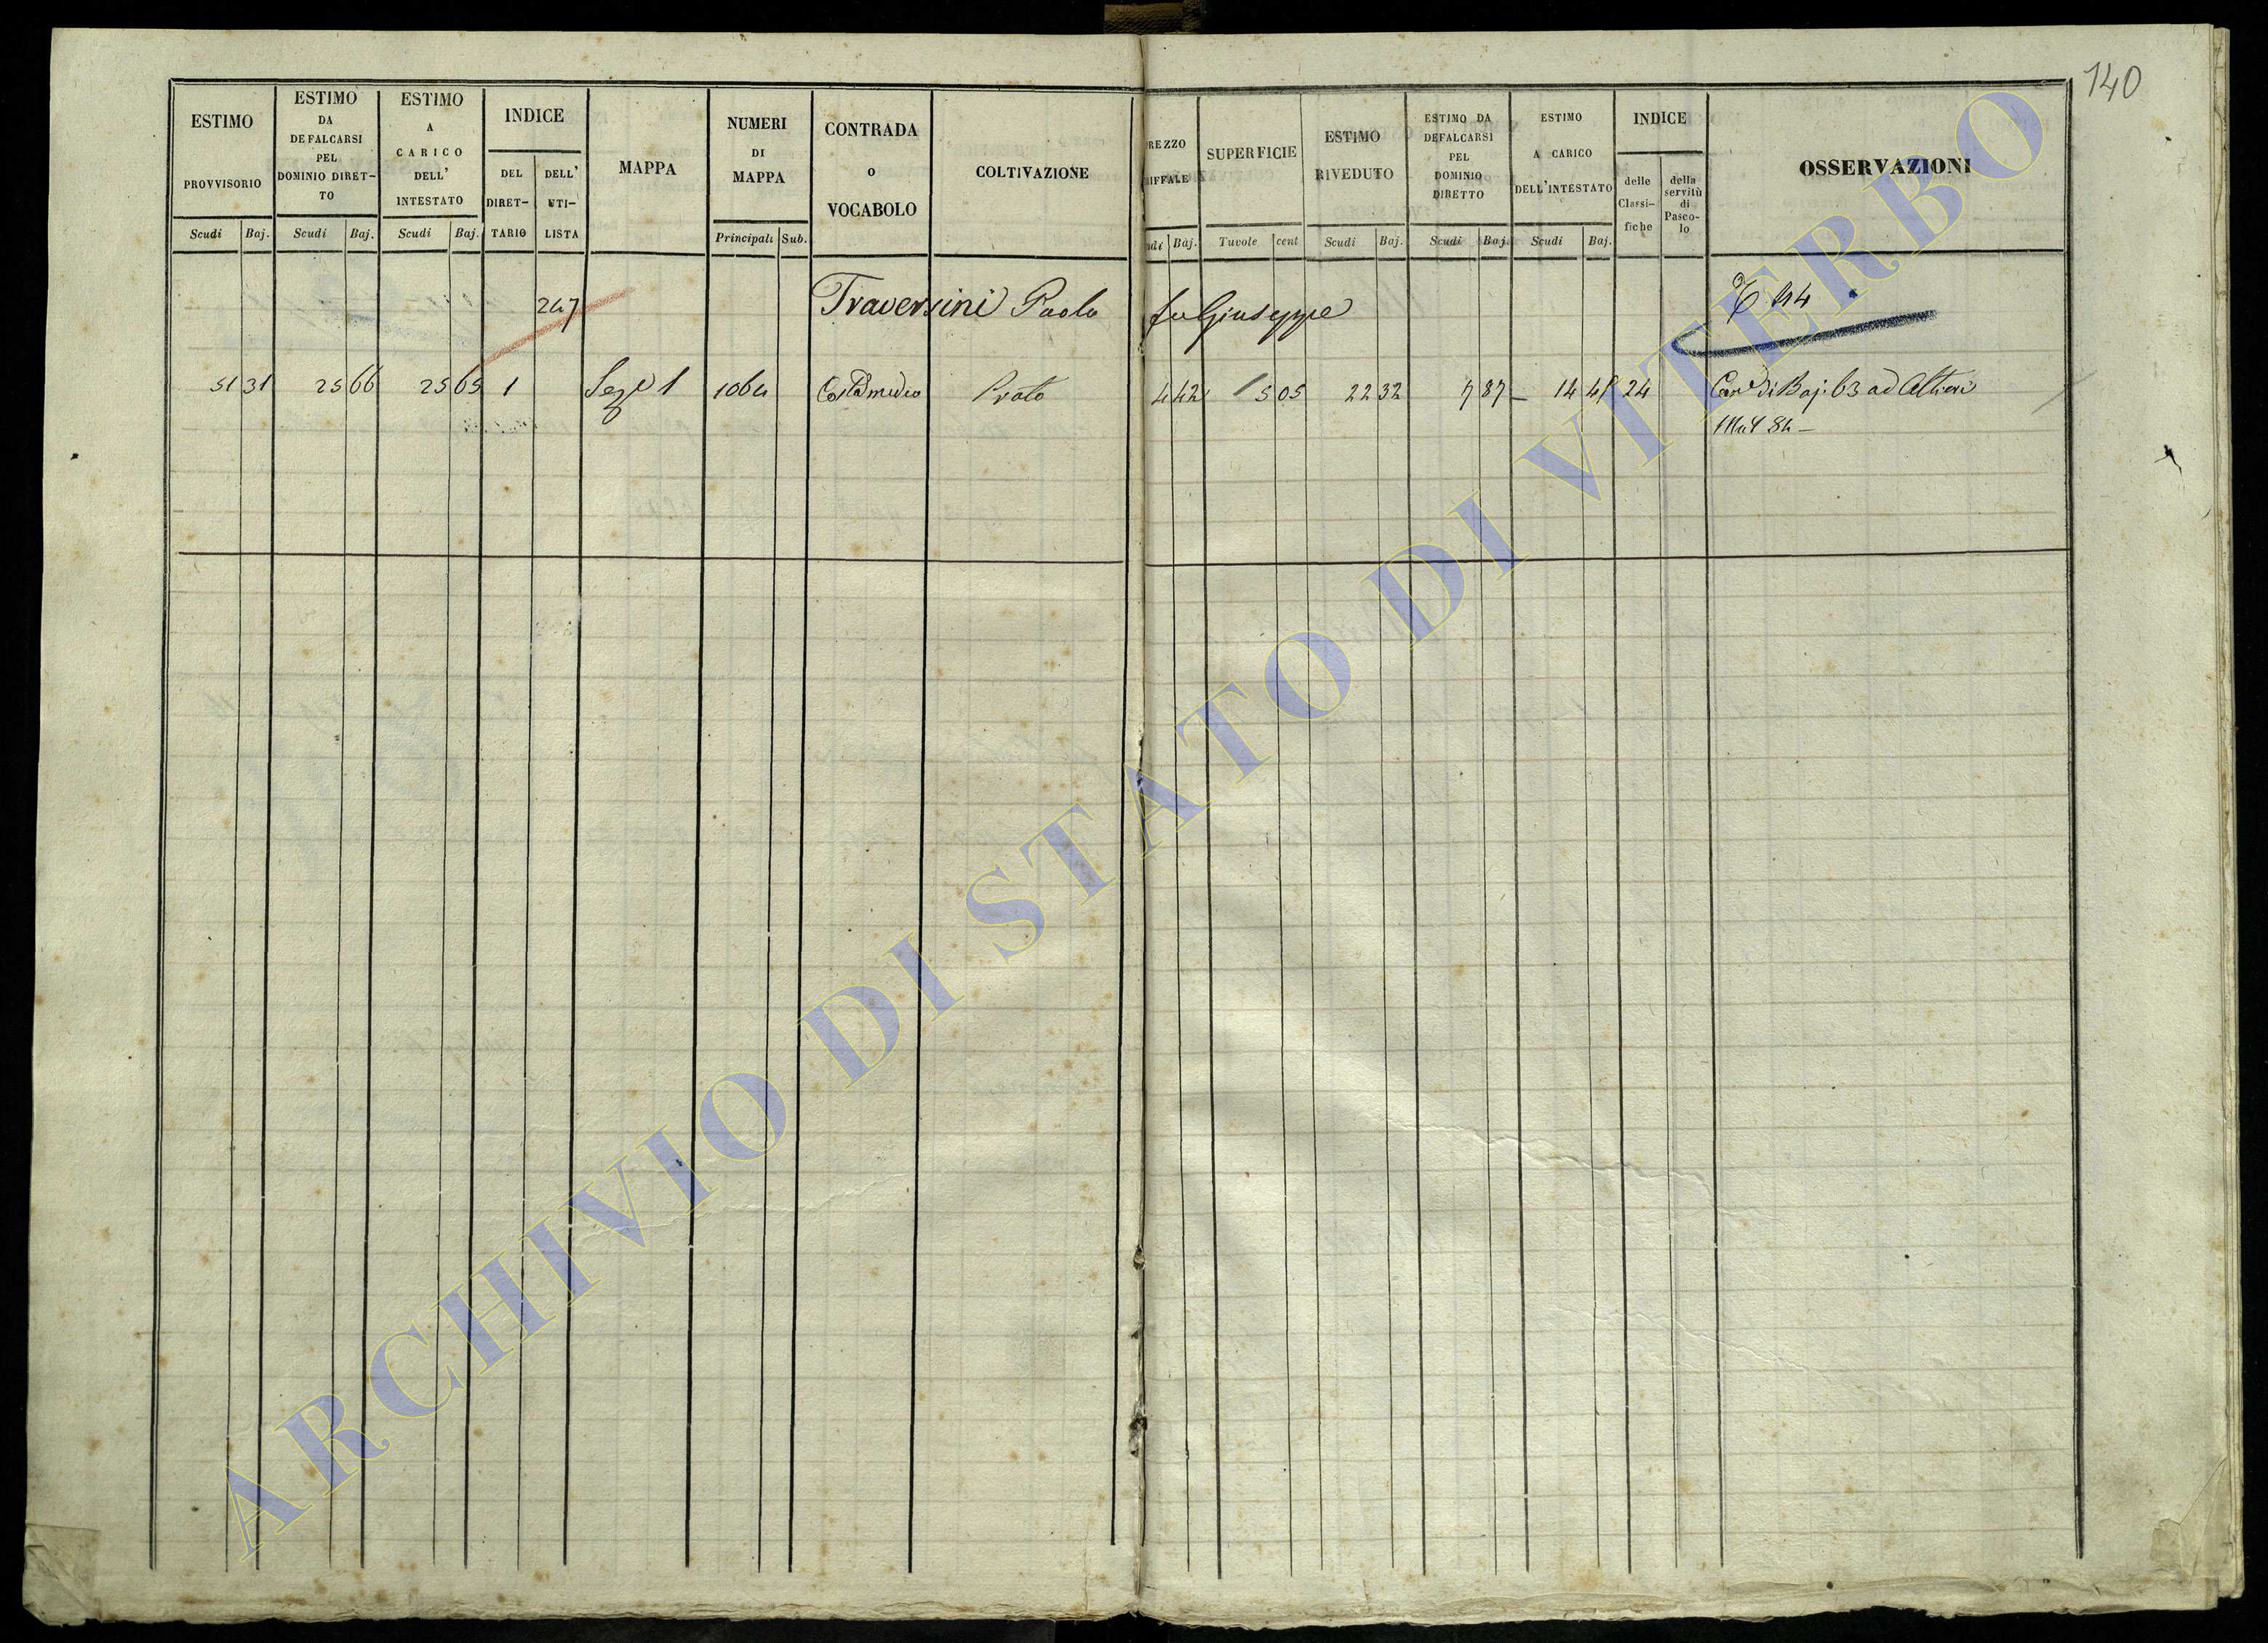 140
ESTIMO PROVVISORIO
ESTIMO DA DEFALCARSI PEL DOMINIO DIRET-TO
ESTIMO A CARICO DELL' INTESTATO
INDICE
DEL DIRET-TARIO
DELL' UTI-LISTA
MAPPA
NUMERI DI MAPPA
CONTRADA o VOCABOLO
COLTIVAZIONE
REZZO RIFFALE
SUPERFICIE
ESTIMO RIVEDUTO
ESTIMO DA DEFALCARSI PEL DOMINIO DIRETTO
ESTIMO A CARICO DELL'INTESTATO
INDICE
delle Classi-fiche
della servitù di Pasco-lo
OSSERVAZIONI
Scudi Baj. Scudi Baj. Scudi Baj. Principali Sub. udi Baj. Tavole cent Scudi Baj. Scudi Baj. Scudi Baj.
247 Traversini Paolo fu Giuseppe
51 31 25 66 25 65 1 Sez 1 1064 Prato 4 42 5 05 22 32 7 87 14 45 24 di Baj. 63 ad Altieri
ARCHIVIO DI STATO DI VITERBO